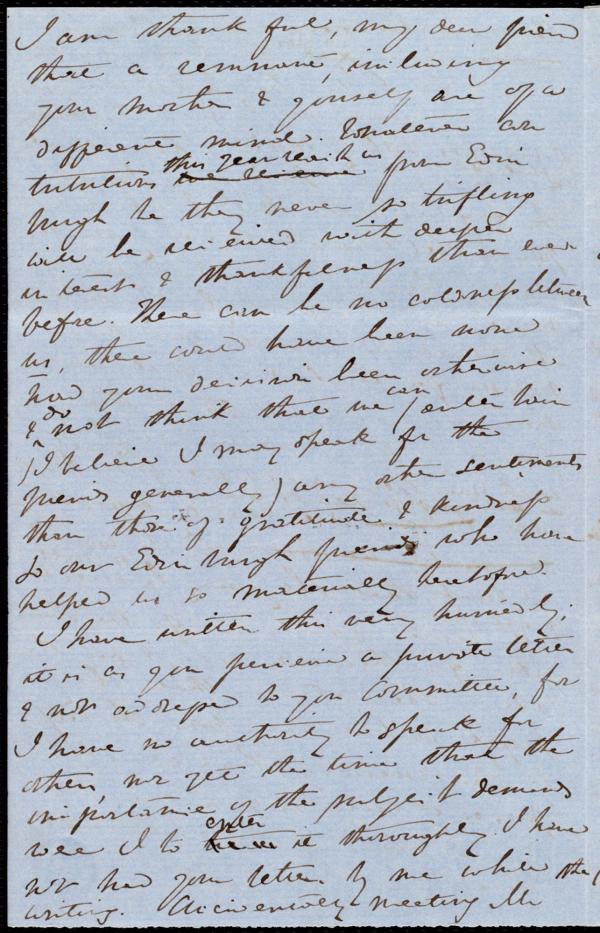 I am thankful, my dear friend
that a remnant, including
your mother & yourself are of a
different mind. Whatever con
tributions this year reach us from Edin
burgh be they never so trifling
will be received with deeper
interest & thankfulness than ever
before. There can be no coldness between
us, there could have been none
had your decision been otherwise
& do not think that we can entertain
(I believe I may speak for the
friends generally) any other sentiments
than those of gratitude & kindness
to our Edinburgh friends who have
helped us so materially heretofore.
I have written this very hurriedly,
it is as you perceive a private letter
& not address to your Committee, for
I have no authority to speak for
others, nor yet the time that the
importance of the subject demands
were I to enter it thoroughly. I have
not had your letter by me while
writing. Accidentally meeting Mr